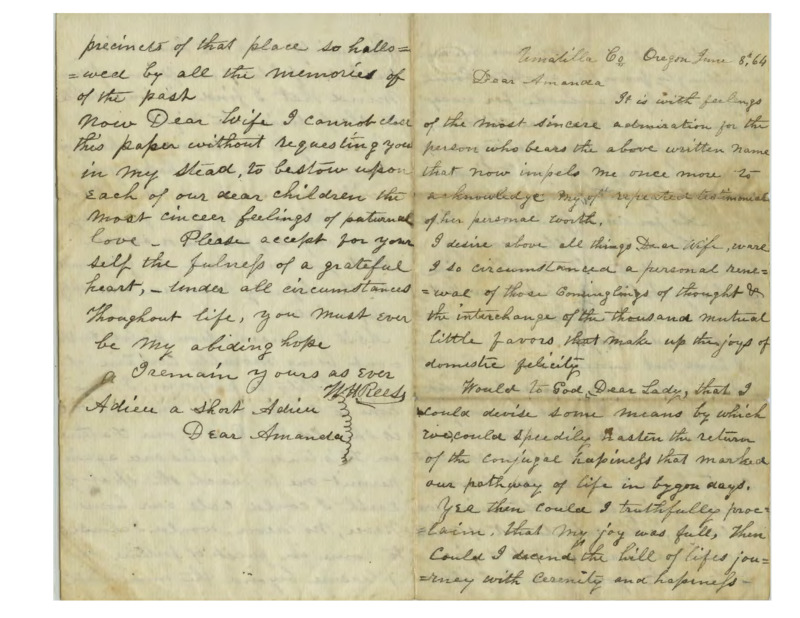 Umatilla Co Oregon June 8th, 64
Dear Amanda
It is with feelings
of the most sincere admiration for the
person who bears the above written name
that now impels me once more to
acknowledge my oft repeated testimonials
of her personal worth.
I desire above all things Dear Wife, ware
I so circumstanced a personal rene=
=wal of those Cominglings of thought &
the interchange of the thousand mutual
little favors, that make up the joys of
domestic felicity
Would to God, Dear Lady, that I
could devise some means by which
we could speedily hasten the return
of the conjugal hapiness that marked
our pathway of life in bygon days.
Yea then could I truthfully proc=
=laim, that my joy was full, Then
Could I decend the hill of lifes jou=
=rney with cerenity and hapiness –
precincts of that place so hallo=
=wed by all the memories of
of the past
Now Dear Wife I cannot close
this paper without requesting you
in my stead, to bestow upon
Each of our dear children the
most cinceer feelings of paturnal
love – Please accept for your
self the fulness of a grateful
heart, – under all circumstances
Thoughout life, you must ever
be my abiding hope
I remain yours as ever
W H Rees
Adieu a short Adieu
Dear Amanda